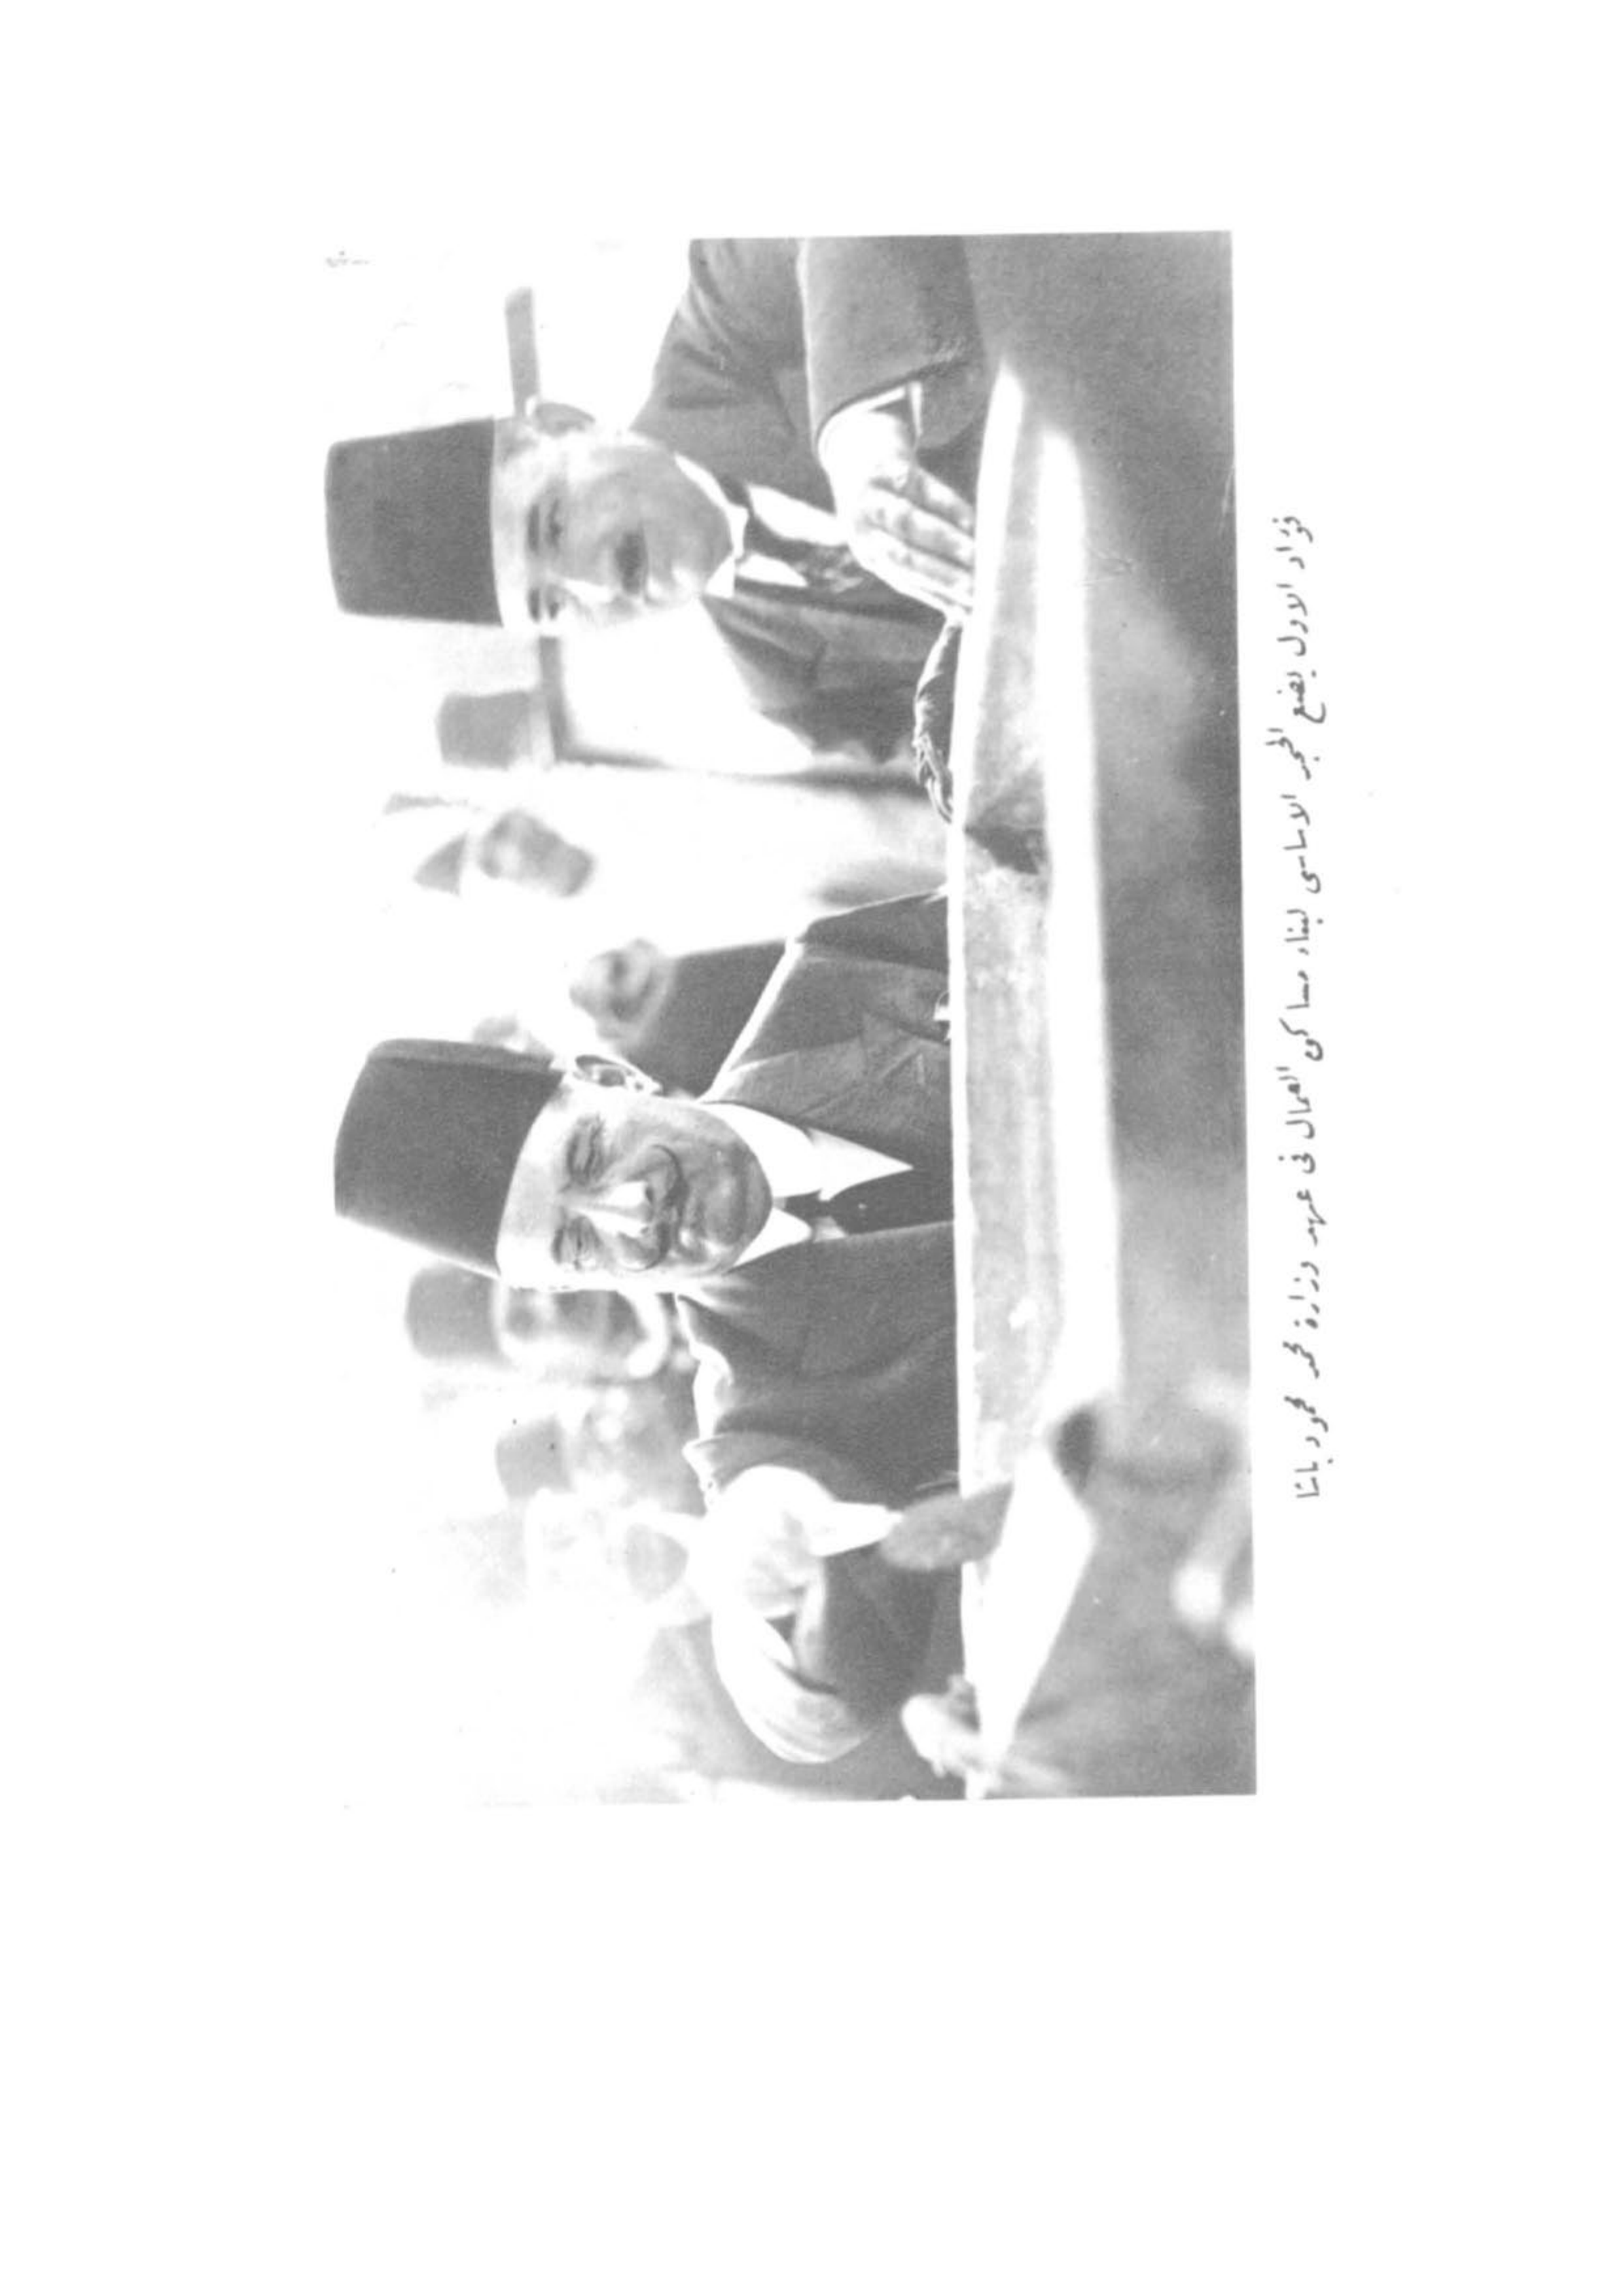 فؤاد الاول يضع الحجر الاساسى لبناء مساكن العمال فى عهد وزارة محمد محمود باشا